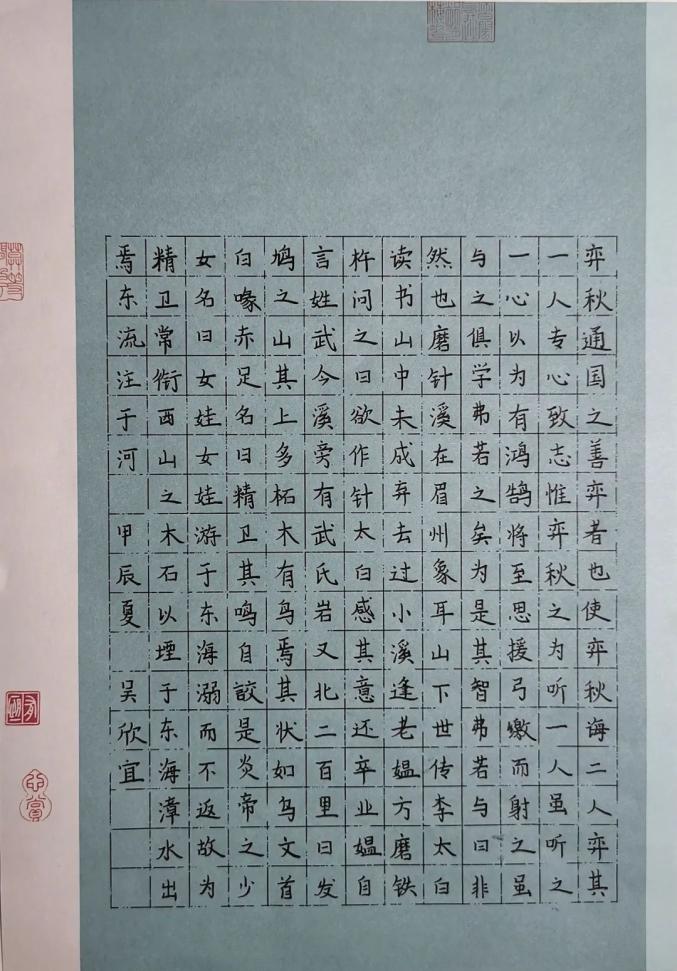 弈秋通国之善弈者也使弈秋诲二人弈其
一人专心致志惟弈秋之为听一人虽听之
一心以为有鸿鹄将至思援弓缴而射之虽
与之俱学弗若之矣为是其智弗若与曰非
然也磨针溪在眉州象耳山下世传李太白
读书山中未成弃去过小溪逢老媪方磨铁
杵问之曰欲作针太白感其意还卒业媪自
言姓武今溪旁有武氏岩又北二百里曰发
鸠之山其上多柘木有鸟焉其状如乌文首
白喙赤足名曰精卫其鸣自詨是炎帝之少
女名曰女娃女娃游于东海溺而不返故为
精卫常衔西山之木石以堙于东海漳水出
焉东流注于河 甲辰夏 吴欣宜
心赏